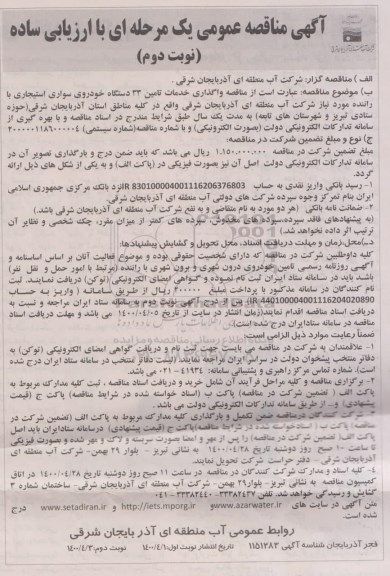 آگهی مناقصه عمومی یک مرحله ای با ارزیابی ساده
(نوبت دوم)
الف) مناقصه گزار: شرکت آب منطقه ای آذربایجان شرقی.
ب) موضوع مناقصه: عبارت است از مناقصه واگذاری خدمات تامین ۳۳ دستگاه خودروی سواری استیجاری با
راننده مورد نیاز شرکت آب منطقه ای آذربایجان شرقی واقع در کلیه مناطق استان آذربایجان شرقی(حوزه
ستادی تبریز و شهرستان های تابعه) به مدت یک سال طبق شرایط مندرج در اسناد مناقصه و با بهره گیری از
سامانه تدارکات الکترونیکی دولت (بصورت الکترونیکی) و با شماره مناقصه(شماره سیستمی)
ج) نوع و مبلغ تضمین شرکت در مناقصه:
مبلغ تضمین شرکت در مناقصه ۱.۱۵۰.۰۰۰.۰۰۰ ریال می باشد که باید ضمن درج و بارگذاری تصویر آن در
سامانه تدارکات الکترونیکی دولت اصل آن نیز بصورت فیزیکی در (پاکت الف) و به یکی از شکل های ذیل ارائه
گردد.
۱- رسید بانکی واریز نقدی به حساب IR 830100004001116206376803 نزد بانک مرکزی جمهوری اسلامی
ایران بنام تمرکز وجوه سپرده شرکت های دولتی آب منطقه ای آذربایجان شرقی.
۲- ضمانت نامه بانکی (هر دو مورد به نام متقاضی و به نفع شرکت آب منطقه ای آذربایجان شرقی باشد.)
(به پیشنهادهای فاقد سپرده، سپرده های مخدوش، سپرده های کمتر از میزان مقرر، چک شخصی و نظایر آن
ترتیب اثر داده نخواهد شد.)
د- محل، زمان و مهلت دریافت اسناد، محل تحویل و گشایش پیشنهادها:
کلیه داوطلبین شرکت در مناقصه که دارای شخصیت حقوقی بوده و موضوع فعالیت آنان بر اساس اساسنامه و
آگهی روزنامه رسمی تامین خودروی درون شهری و برون شهری با راننده (مرتبط با امور حمل و نقل نفر)
باشد باید در سامانه ستاد ایران ثبت نام نموده و گواهی امضای الکترونیکی (توکن) دریافت نمایند. ثبت
نام کنندگان در سامانه مذکور با پرداخت مبلغ ریال از طریق سامانه (واریز به حساب
IR 440100004001116204020890) از تاریخ درج آگهی نوبت دوم به سامانه ستاد ایران مراجعه و نسبت به
دریافت اسناد مناقصه اقدام نمایند(زمان انتشار در سایت از تاریخ ۱۴۰۰/۴/۰۵ می باشد و مهلت دریافت اسناد
مناقصه در سامانه ستاد ایران درج شده است).
ضمنا رعایت موارد ذیل الزامی است:
۱- علاقمندان به شرکت در مناقصه می بایست جهت ثبت نام و دریافت گواهی امضای الکترونیکی (توکن) به
دفاتر منتخب پیشخوان دولت در سراسر ایران مراجعه نمایند. (لیست دفاتر منتخب در سامانه ستاد ایران درج شده
است). شماره تماس مرکز راهبری و پشتیبانی سامانه: ۴۱۹۳۴-۰۲۱ می باشد.
۲- برگزاری مناقصه و کلیه مراحل فرآیند آن شامل خرید و دریافت اسناد مناقصه، ثبت کلیه مدارک مربوط به
پاکت الف ( تضمین شرکت در مناقصه) پاکت ب (اسناد خواسته شده در شرایط مناقصه) پاکت ج (قیمت
پیشنهادی) و.. از طریق سامانه تدارکات الکترونیکی دولت می باشد.
شرکت کنندگان در مناقصه ضمن تکمیل و بارگذاری کلیه مدارک مربوط به پاکت الف (تضمین شرکت در
مناقصه) پاکت ب (اسناد خواسته شده در شرایط مناقصه) پاکت ج (قیمت پیشنهادی) درسامانه ستاد ایران باید اصل
پاکت الف( تضمین شرکت در مناقصه) را پس از مهر و امضا بصورت سربسته و لاک و مهر شده و بصورت فیزیکی
تا ساعت ۱۰ صبح روز دوشنبه تاریخ ۱۴۰۰/۰۴/۲۸ به نشانی تبریز - بلوار ۲۹ بهمن- شرکت آب منطقه ای
آذربایجان شرقی - دفتر حراست شرکت تحویل نمایند.
۴- کلیه اسناد و مدارک شرکت کنندگان در مناقصه در ساعت ۱۱ صبح روز دوشنبه تاریخ ۱۴۰۰/۰۴/۲۸ در اتاق
کمیسیون مناقصه به نشانی تبریز- بلوار ۲۹بهمن- شرکت آب منطقه ای آذربایجان شرقی- ساختمان شماره ۳
گشایش و رسیدگی خواهد شد.
متن آگهی در سایت های www.azarwater.ir و http://iets.mporg.ir و www.setadiran.ir درج
شده است.
روابط عمومی آب منطقه ای آذربایجان شرقی
فجر آذربایجان شناسه آگهی ۱۱۵۱۲۸۳ تاریخ انتشار نوبت اول: ۱۴۰۰/۴/۱ نوبت دوم: ۱۴۰۰/۴/۳